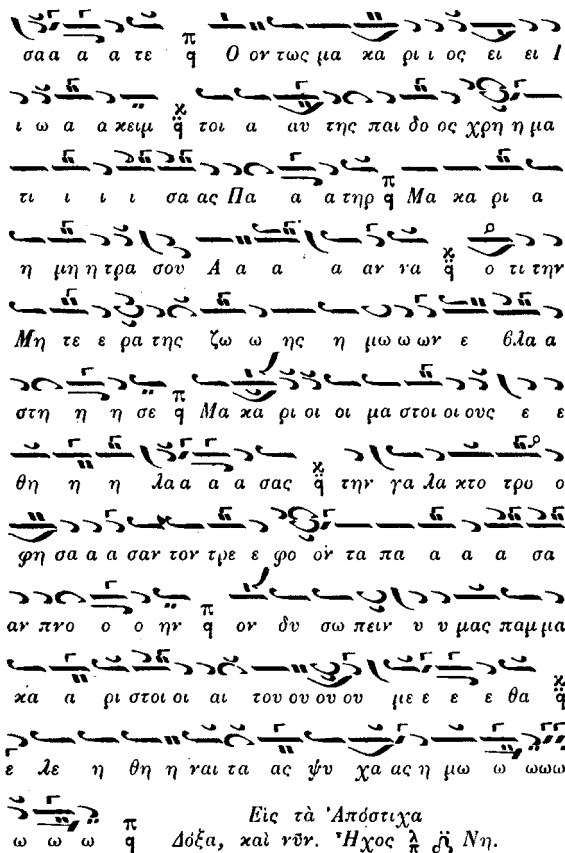 σαα α α τε π q Ο ον τως μα κα ρι ι ος ει ει Ι
ι ω α α κειμ ϰ q τοι α αυ της παι δο ος χρη η μα
τι ι ι ι σα ας Πα α α τηρ π q Μα κα ρι α
η μη η τρα σου Α α α α αν να ϰ q ο τι την
Μη τε ε ρα της ζω ω ης η μω ω ων ε βλα α
στη η η σε π q Μα κα ρι οι οι μα στοι οι ους ε ε
θη η η λαα α α σας ϰ q την γα λα κτο τρο ο
φη σα α α σαν τον τρε ε φο ον τα πα α α α σα
αν πνο ο ο ην π q ον δυ σω πειν υ υ μας παμ μα
κα α ρι στοι οι αι του ου ου ου με ε ε ε θα ϰ q
ε λε η θη η ναι τα ας ψυ χα ας η μω ω ωωω
ω ω ω π q Εἰς τὰ Ἀπόστιχα
Δόξα, καὶ νῦν. Ἦχος λ π Νη.